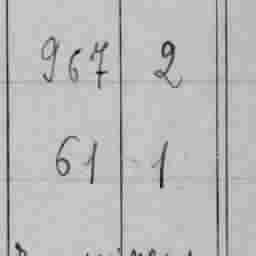 967 2
61 1